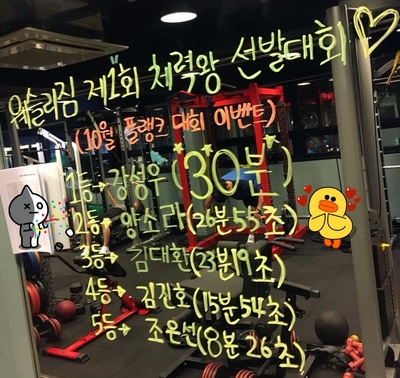 웨슬리짐 제1회 체력왕 선발대회♡
(10월 플랭크 대회 이벤트)
1등→강성우(30분)
2등→왕소라(26분55초)
3등→김대환(23분19초)
4등→김진호(15분54초)
5등→조은선(8분26초)